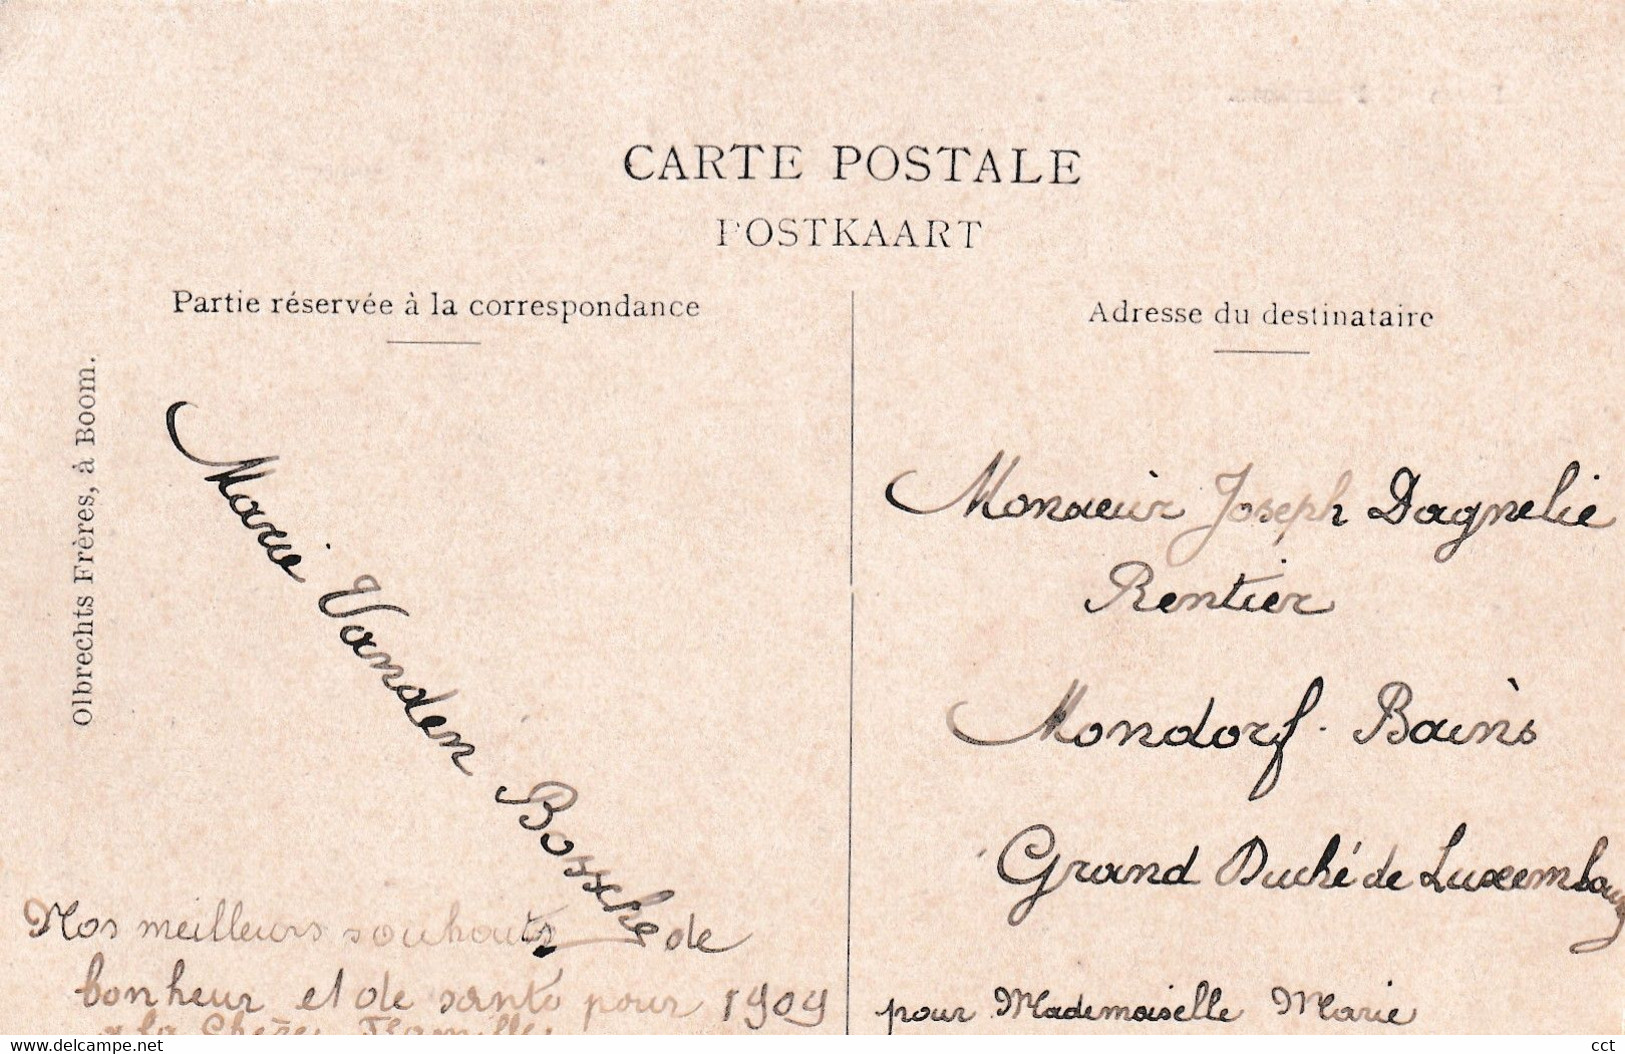 CARTE POSTALE
POSTKAART
Partie réservée à la correspondance
Adresse du destinataire
Olbrechts Frères, à Boom.
Marie Vanden Bossche
Nos meilleurs souhaits de
bonheur et de santé pour 1909
à la Chère Famille
Monsieur Joseph Dagnelie
Rentier
Mondorf-Bains
Grand Duché de Luxembourg
pour Mademoiselle Marie
www.delcampe.net
cct